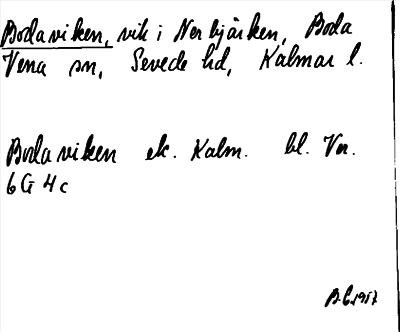 Bodaviken, vik i Nerbjärken, Boda
Vena sn, Sevede hd, Kalmar l.
Boda viken ek. Kalm. bl. Vn.
6G 4c
B.E. 1957